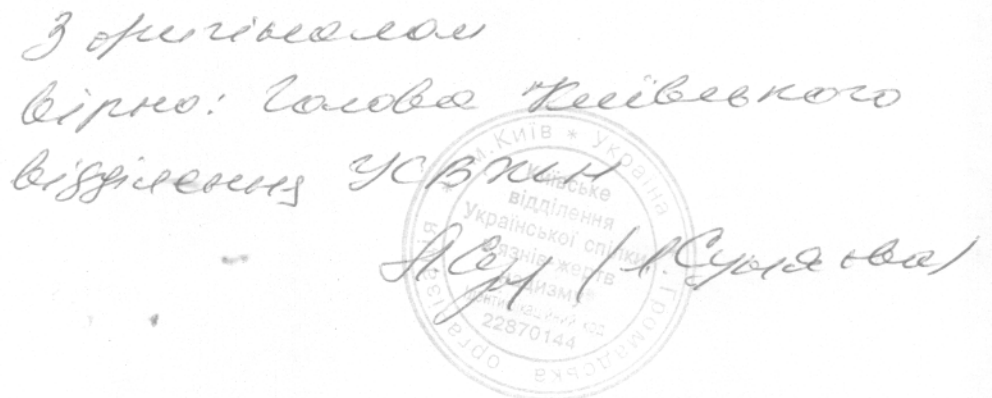 З оригіналом
вірно: Голова Київського
відділення УСВЖН
м. Київ * Україна * Громадська організація
Київське
відділення
Української спілки
в'язнів-жертв
нацизму
Ідентифікаційний код
22870144